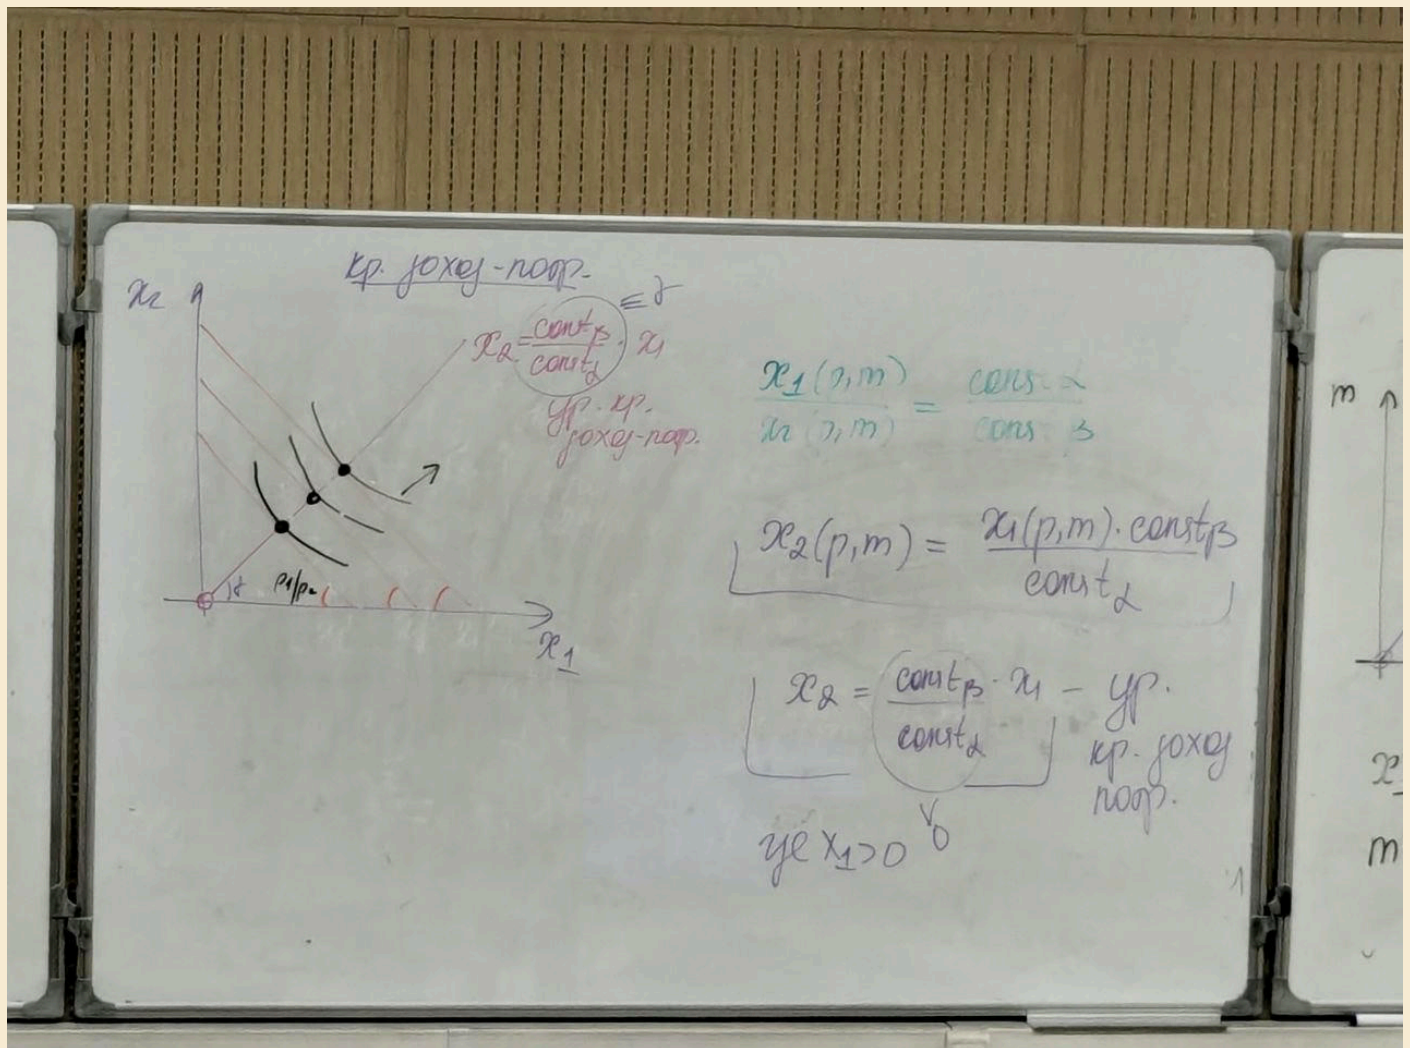 кр. доход-потр.
x₂
x₂ = const_β / const_α · x₁
≡ γ
ур. кр.
доход-потр.
γ
p₁/p₂
x₁
x₁(p,m) / x₂(p,m) = const α / const β
x₂(p,m) = x₁(p,m) · const_β / const_α
x₂ = const_β / const_α · x₁ – ур.
кр. доход
потр.
где x₁>0
v
0
m
x
m